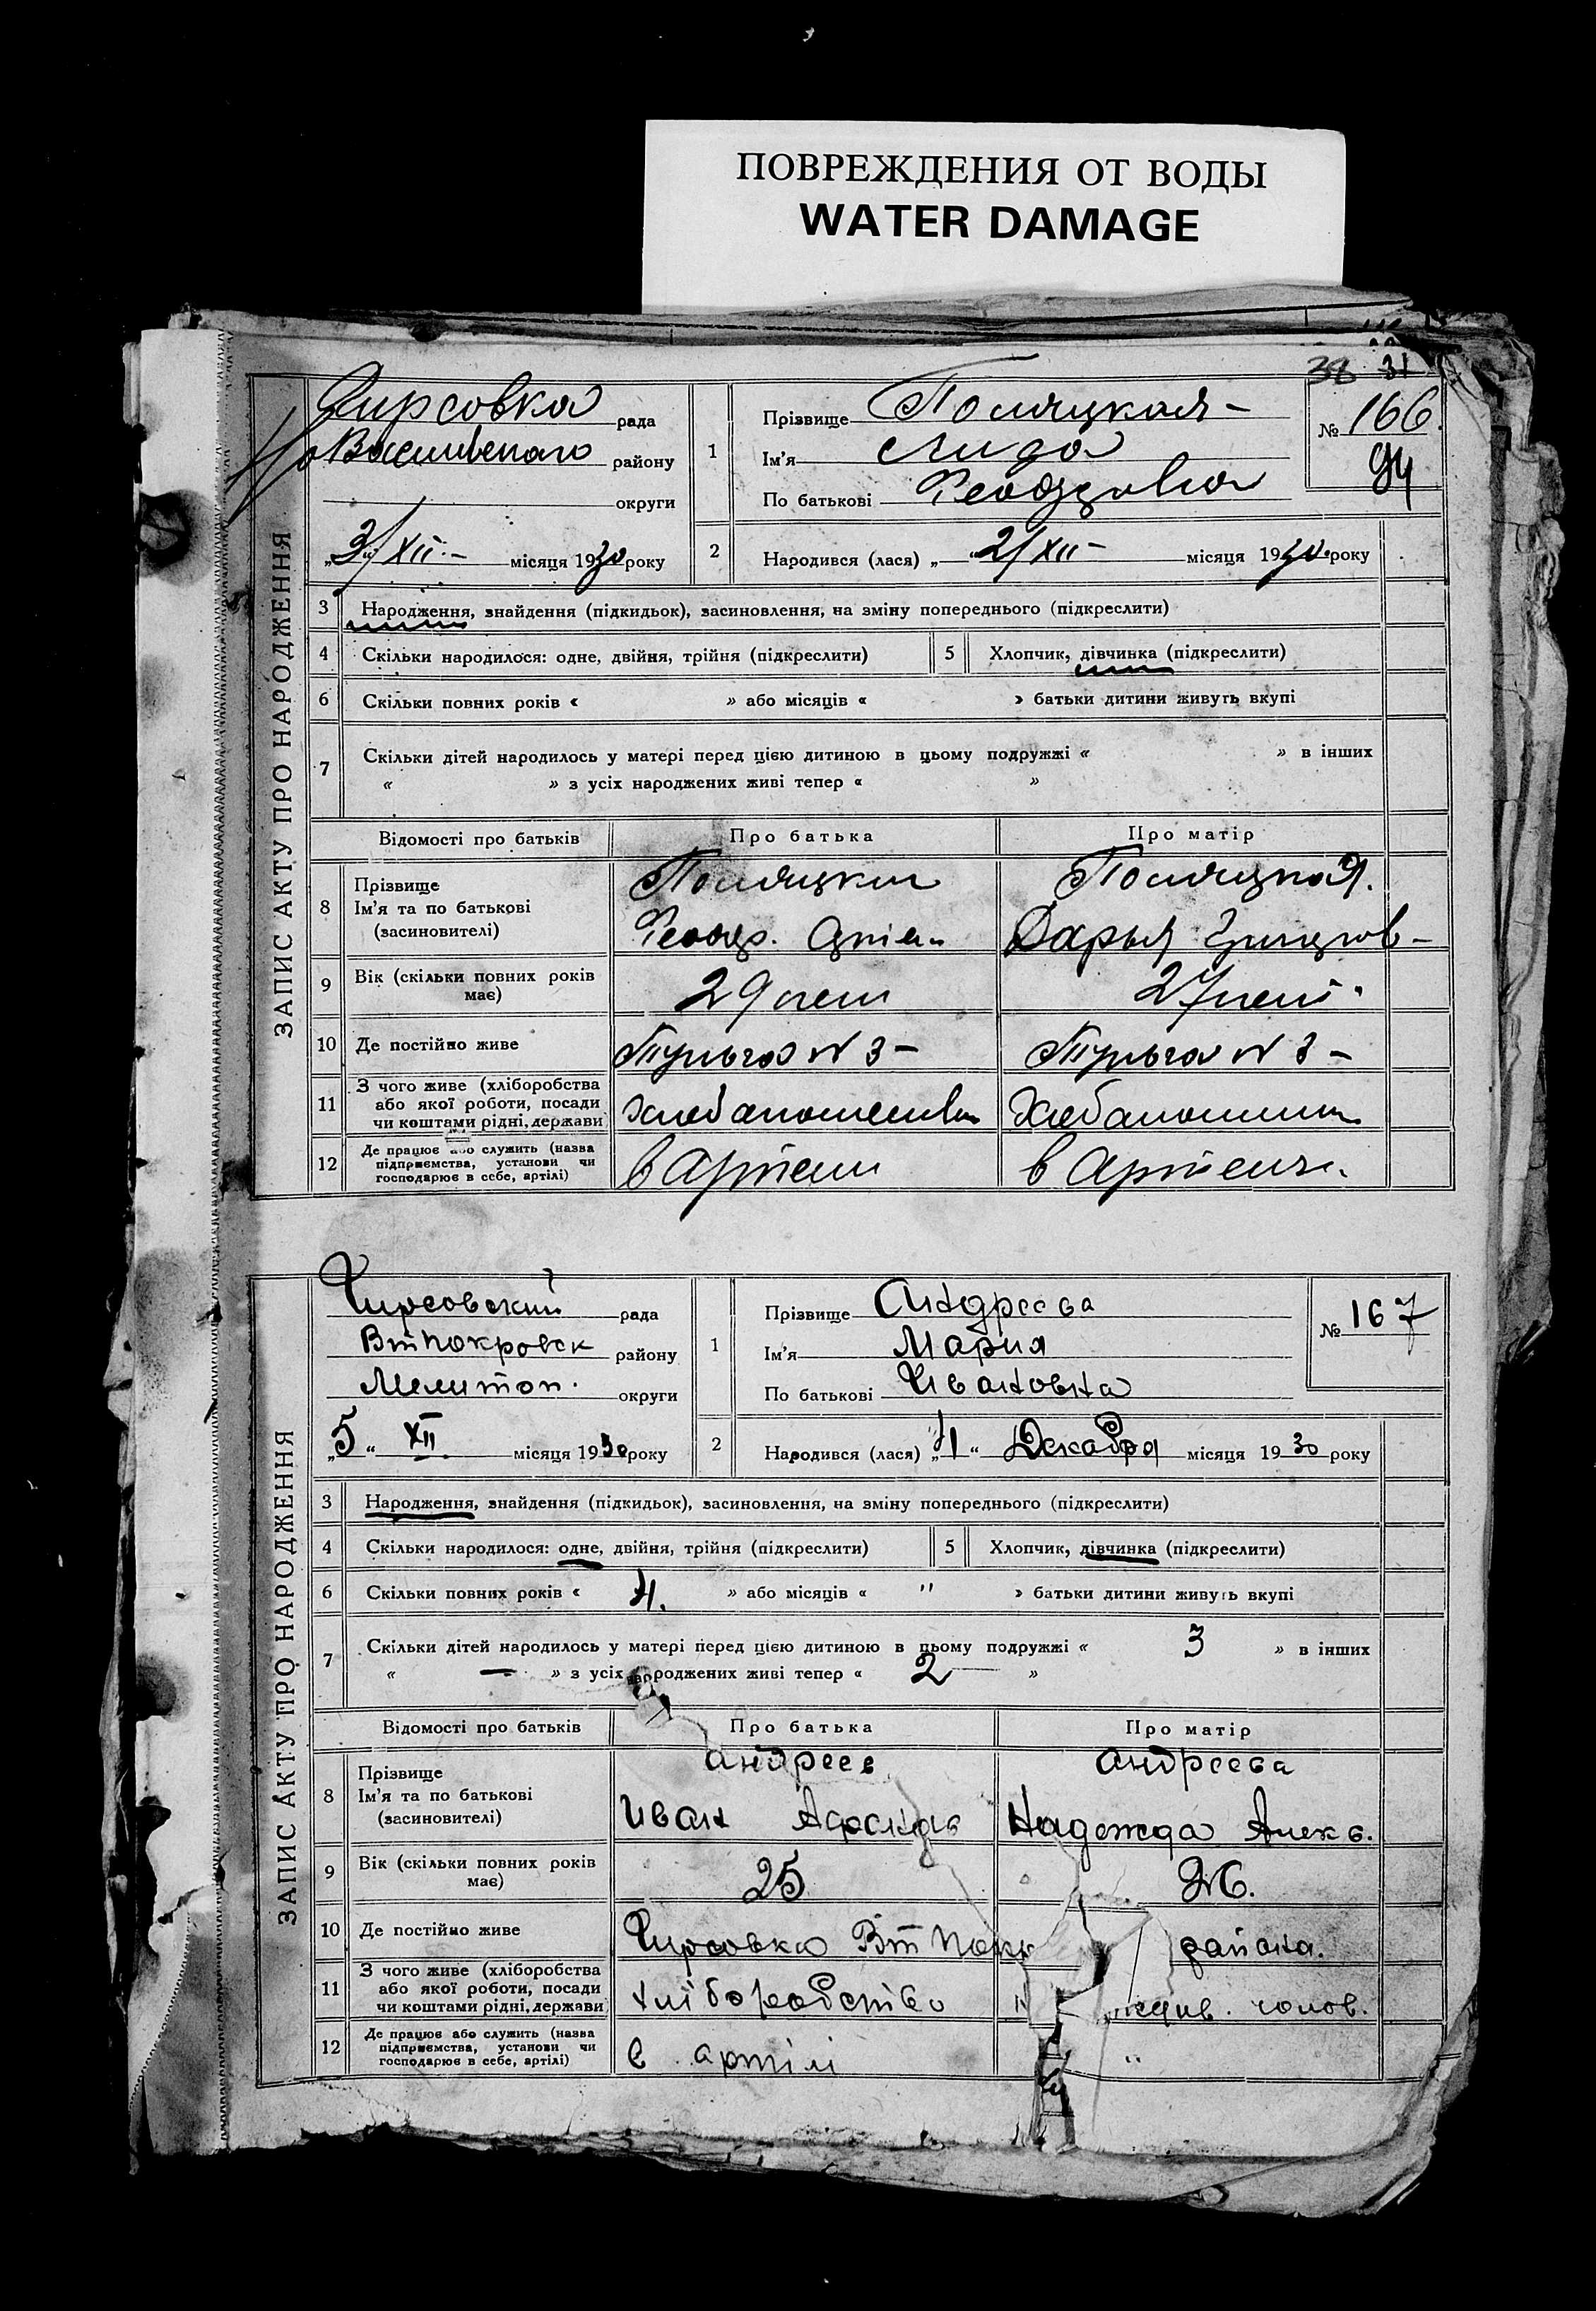 ПОВРЕЖДЕНИЯ ОТ ВОДЫ
WATER DAMAGE
38 31
ЗАПИС АКТУ ПРО НАРОДЖЕННЯ
Гирсовка рада
району
округи
3/XII - місяця 1930 року
1 Прізвище
Ім'я Лида
По батькові
№ 166
94
2 Народився (лася) „2/XII - місяця 1930 року
3 Народження, знайдення (підкидьок), засиновлення, на зміну попереднього (підкреслити)
4 Скільки народилося: одне, двійня, трійня (підкреслити) 5 Хлопчик, дівчинка (підкреслити)
6 Скільки повних років « » або місяців « » батьки дитини живуть вкупі
7 Скільки дітей народилось у матері перед цією дитиною в цьому подружжі « » в інших
« » з усіх народжених живі тепер « »
Відомості про батьків Про батька Про матір
8 Прізвище
Ім'я та по батькові Дарья
(засиновителі)
9 Вік (скільки повних років має) 29 лет 27 лет
10 Де постійно живе N 3 - N 3 -
11 З чого живе (хліборобства
або якої роботи, посади
чи коштами рідні, держави
12 Де працює або служить (назва
підприємства, установи чи
господарює в себе, артілі) в Артели в Артели
ЗАПИС АКТУ ПРО НАРОДЖЕННЯ
Гирсовский рада
ВтПокровск району
Мелитоп. округи
„5“ XII місяця 1930 року
1 Прізвище Андреева
Ім'я Мария
По батькові Ивановна
№ 167
2 Народився (лася) „4“ Декабря місяця 1930 року
3 Народження, знайдення (підкидьок), засиновлення, на зміну попереднього (підкреслити)
4 Скільки народилося: одне, двійня, трійня (підкреслити) 5 Хлопчик, дівчинка (підкреслити)
6 Скільки повних років « 4. » або місяців « " » батьки дитини живуть вкупі
7 Скільки дітей народилось у матері перед цією дитиною в цьому подружжі « 3 » в інших
« — » з усіх народжених живі тепер « 2 »
Відомості про батьків Про батька Про матір
8 Прізвище Андреев Андреева
Ім'я та по батькові
(засиновителі) Иван Надежда Алекс.
9 Вік (скільки повних років має) 25 26.
10 Де постійно живе Гирсовка Вт Покр района.
11 З чого живе (хліборобства
або якої роботи, посади
чи коштами рідні, держави хліборобство чолов.
12 Де працює або служить (назва
підприємства, установи чи
господарює в себе, артілі) в артілі "